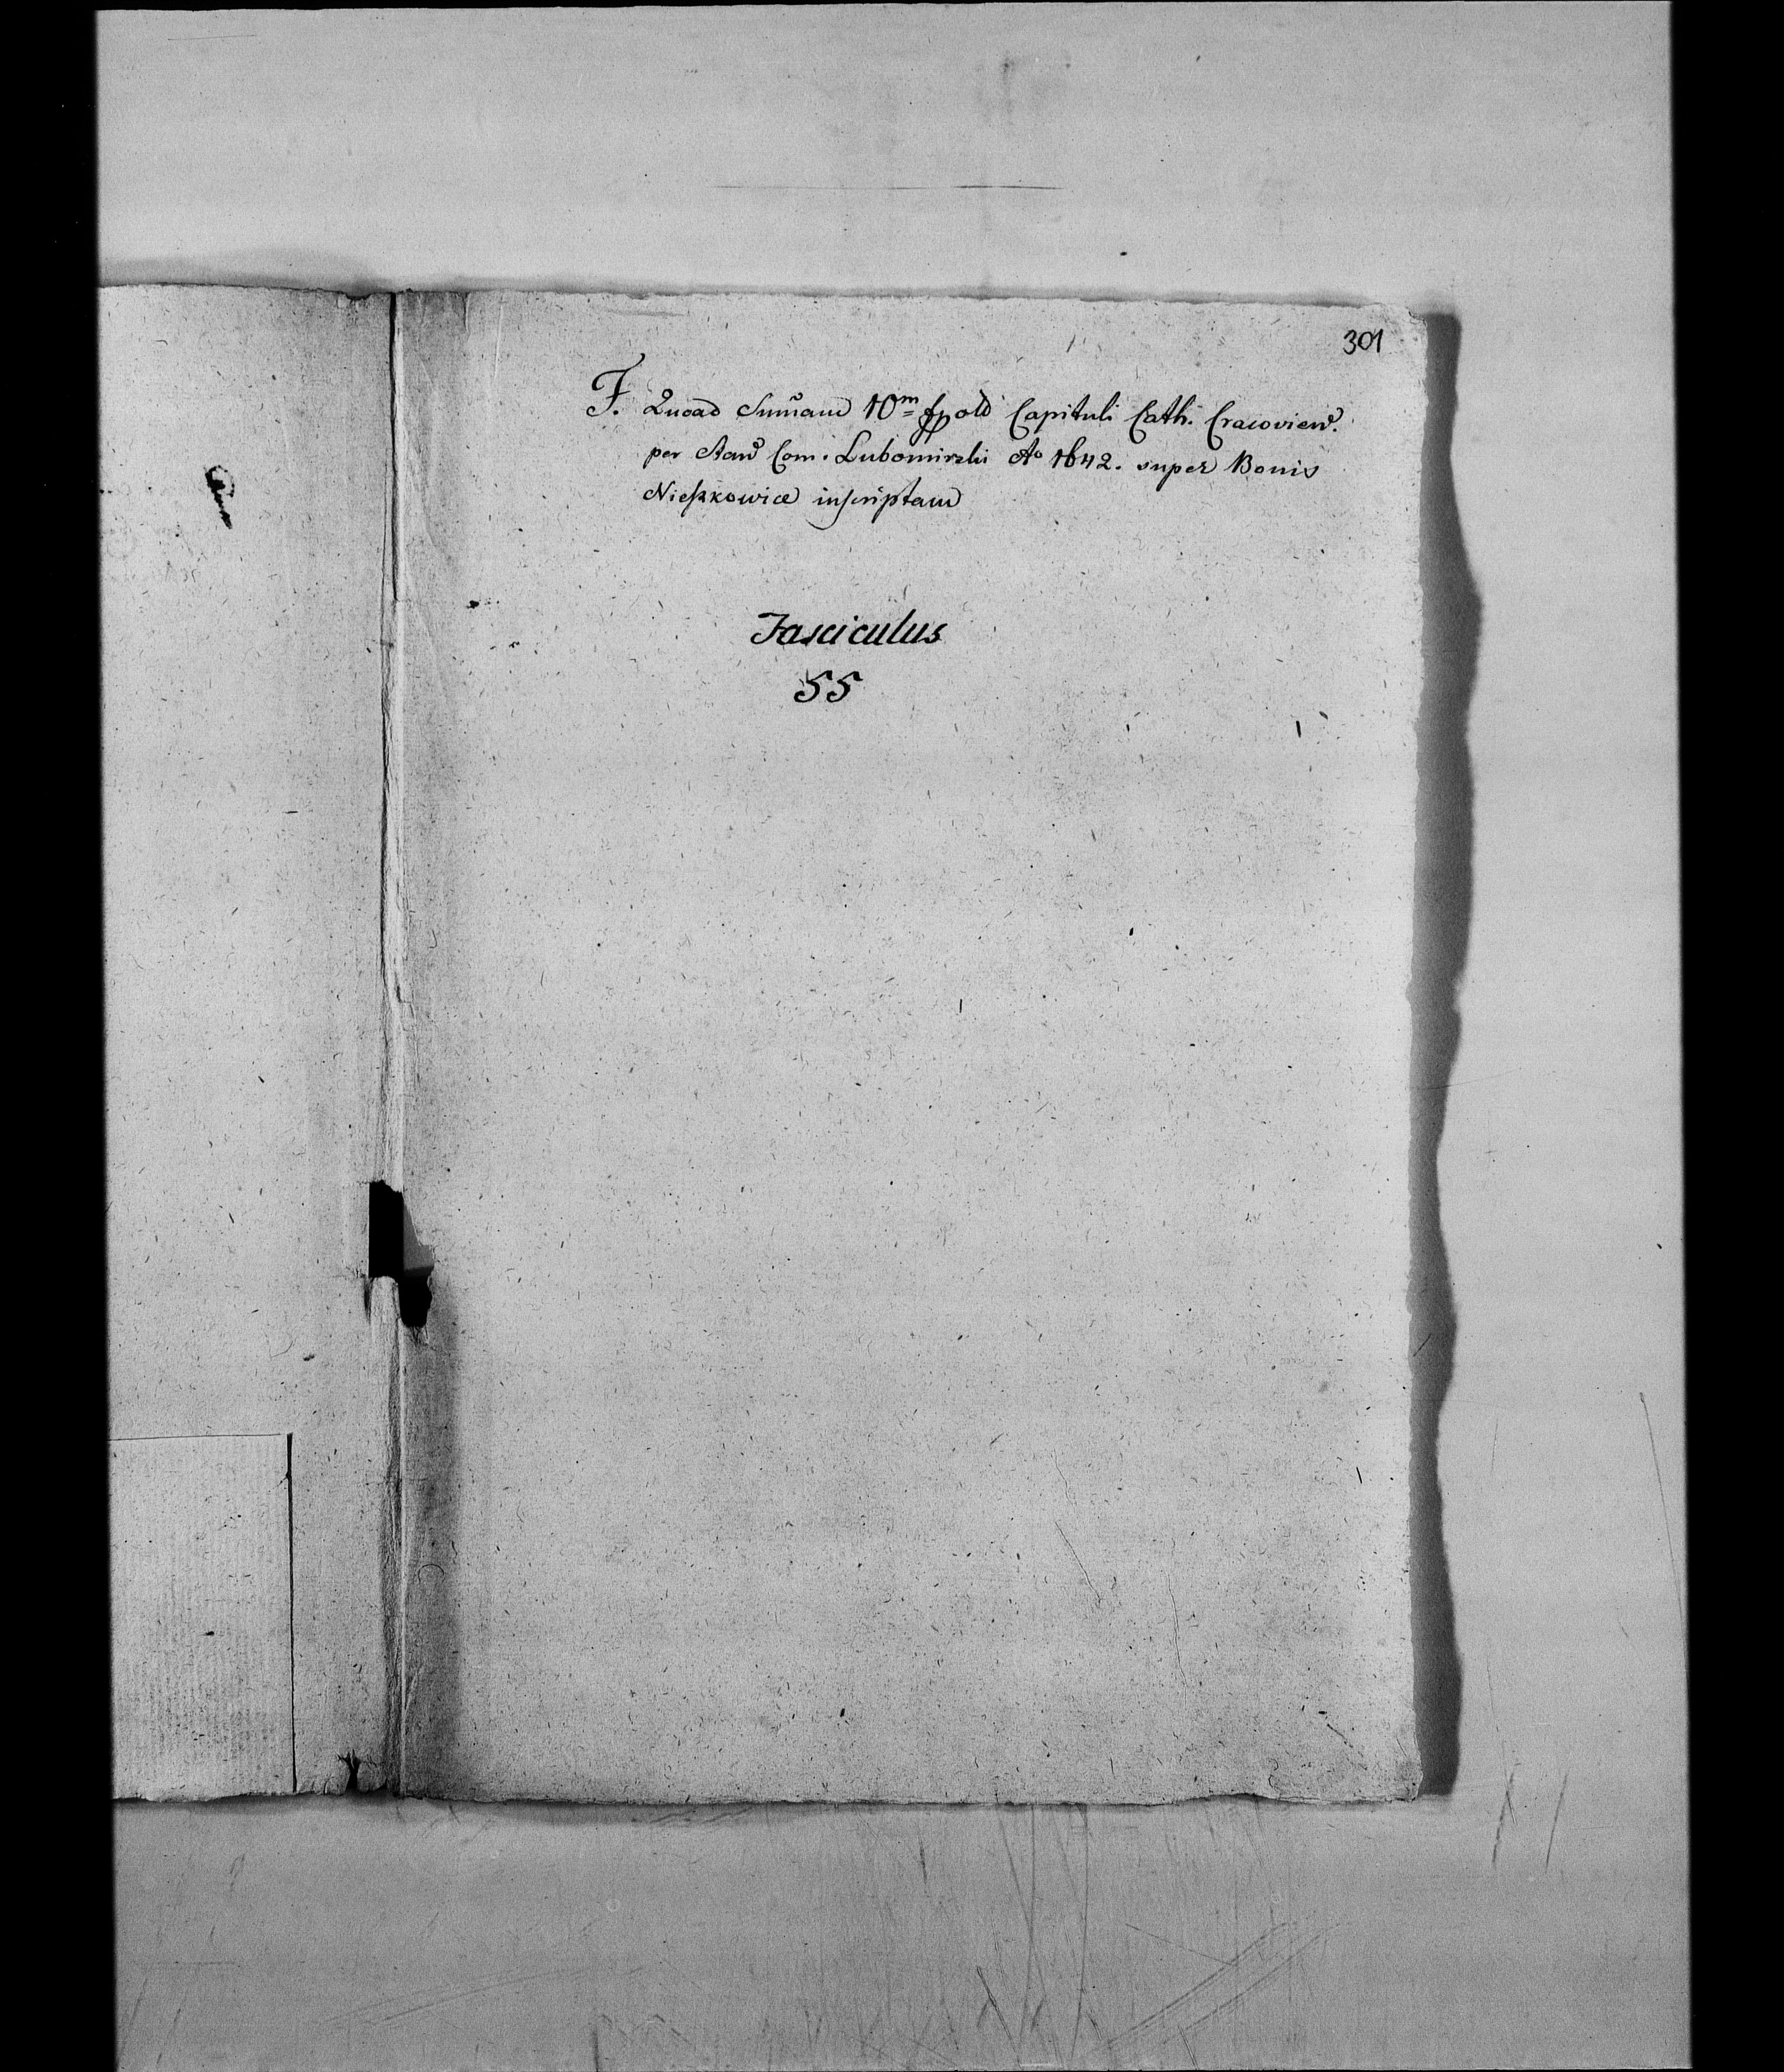 301
F. Quoad Sum̄am 10m fpold Capituli Cath. Cracovien.
per Stan. Com. Lubomirski Ao 1642. super Bonis
Nieszkowice inscriptam
Fasciculus
55